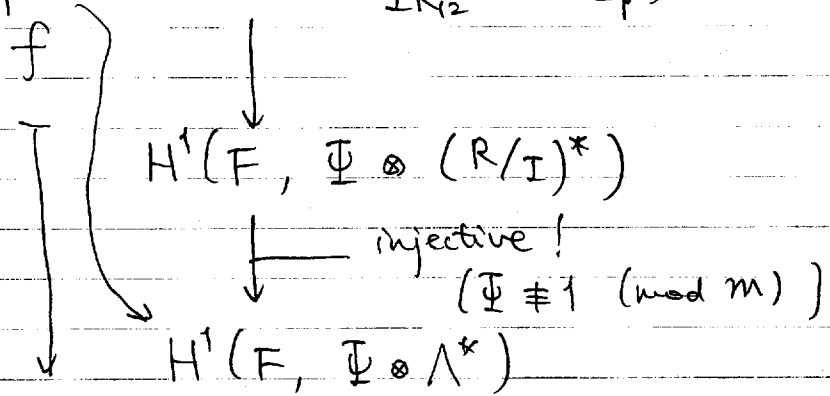 f
H¹(F, Ψ ⊗ (R/I)*)
injective!
(Ψ ≢ 1 (mod m))
H¹(F, Ψ ⊗ Λ*)